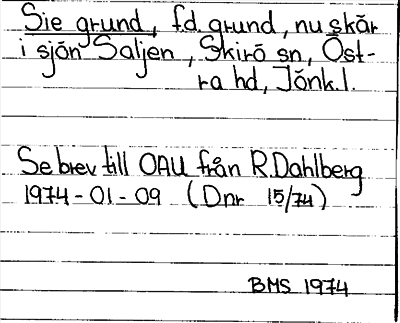 Sie grund, f.d. grund, nu skär
i sjön Saljen, Skirö sn, Öst-
ra hd, Jönk.l.
Se brev till OAU från R.Dahlberg
1974-01-09 (Dnr 15/74)
BMS 1974